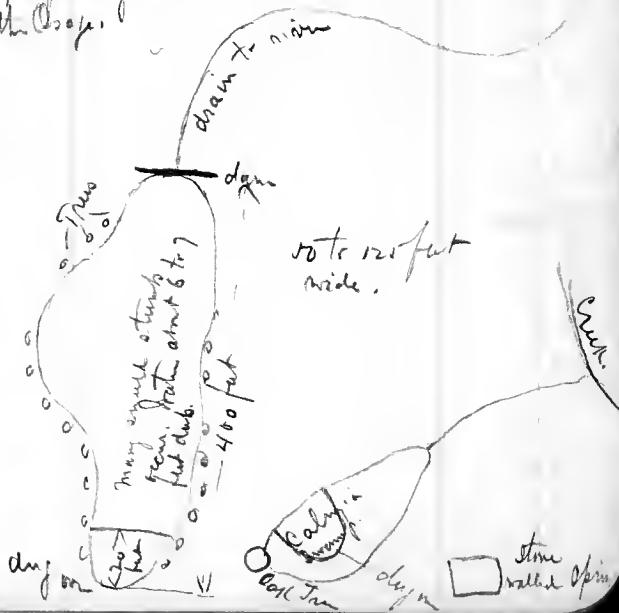 the Osage.
drain to river
dam
Trees
50 to 125 feet
wide.
many small stumps
occur. Water about 6 to 7
feet deep.
400 feet
Creek.
dug
Oak Tree
dug
stone
walled